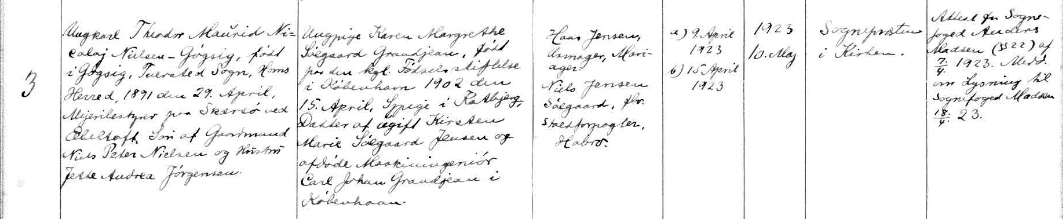 3
Ungkarl Theodor Maurid Ni-
colaj Nielsen-Gøgsig, født
i Gøgsig, Tversted Sogn, Horns
Herred, 1891 den 29. April,
Mejeribestyrer paa Skærsø ved
Ebeltoft. Søn af Gaardmand
Niels Peter Nielsen og Hustru
Jesse Andrea Jörgensen.
Ungpige Karen Margrethe
Söegaard Grandjean, født
paa den kgl. Födselsstiftelse
i København 1902 den
15. April, Sypige i Ratbjerg,
Datter af ugift Kirsten
Marie Söegaard Jensen og
afdøde Maskiningeniör
Carl Johan Grandjean i
København.
Hans Jensen,
Avlsager, Mari-
ager
Niels Jensen
Söegaard, fhv.
Staldforpagter,
Hobro.
a) 9. April
1923
b) 15. April
1923
1923
10. Maj
Sognepræsten
i Kirken.
Attest fra Sogne-
foged Anders
Madsen (§ 22) af
7/4 1923. Medd.
om Lysning til
Sognefoged Madsen
18/4. 23.